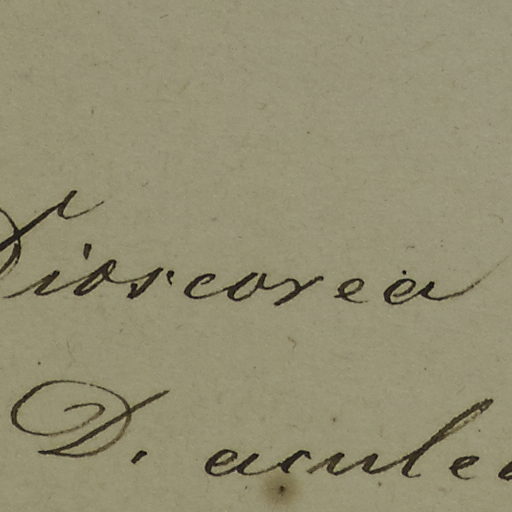 Dioscorea
D. aculea